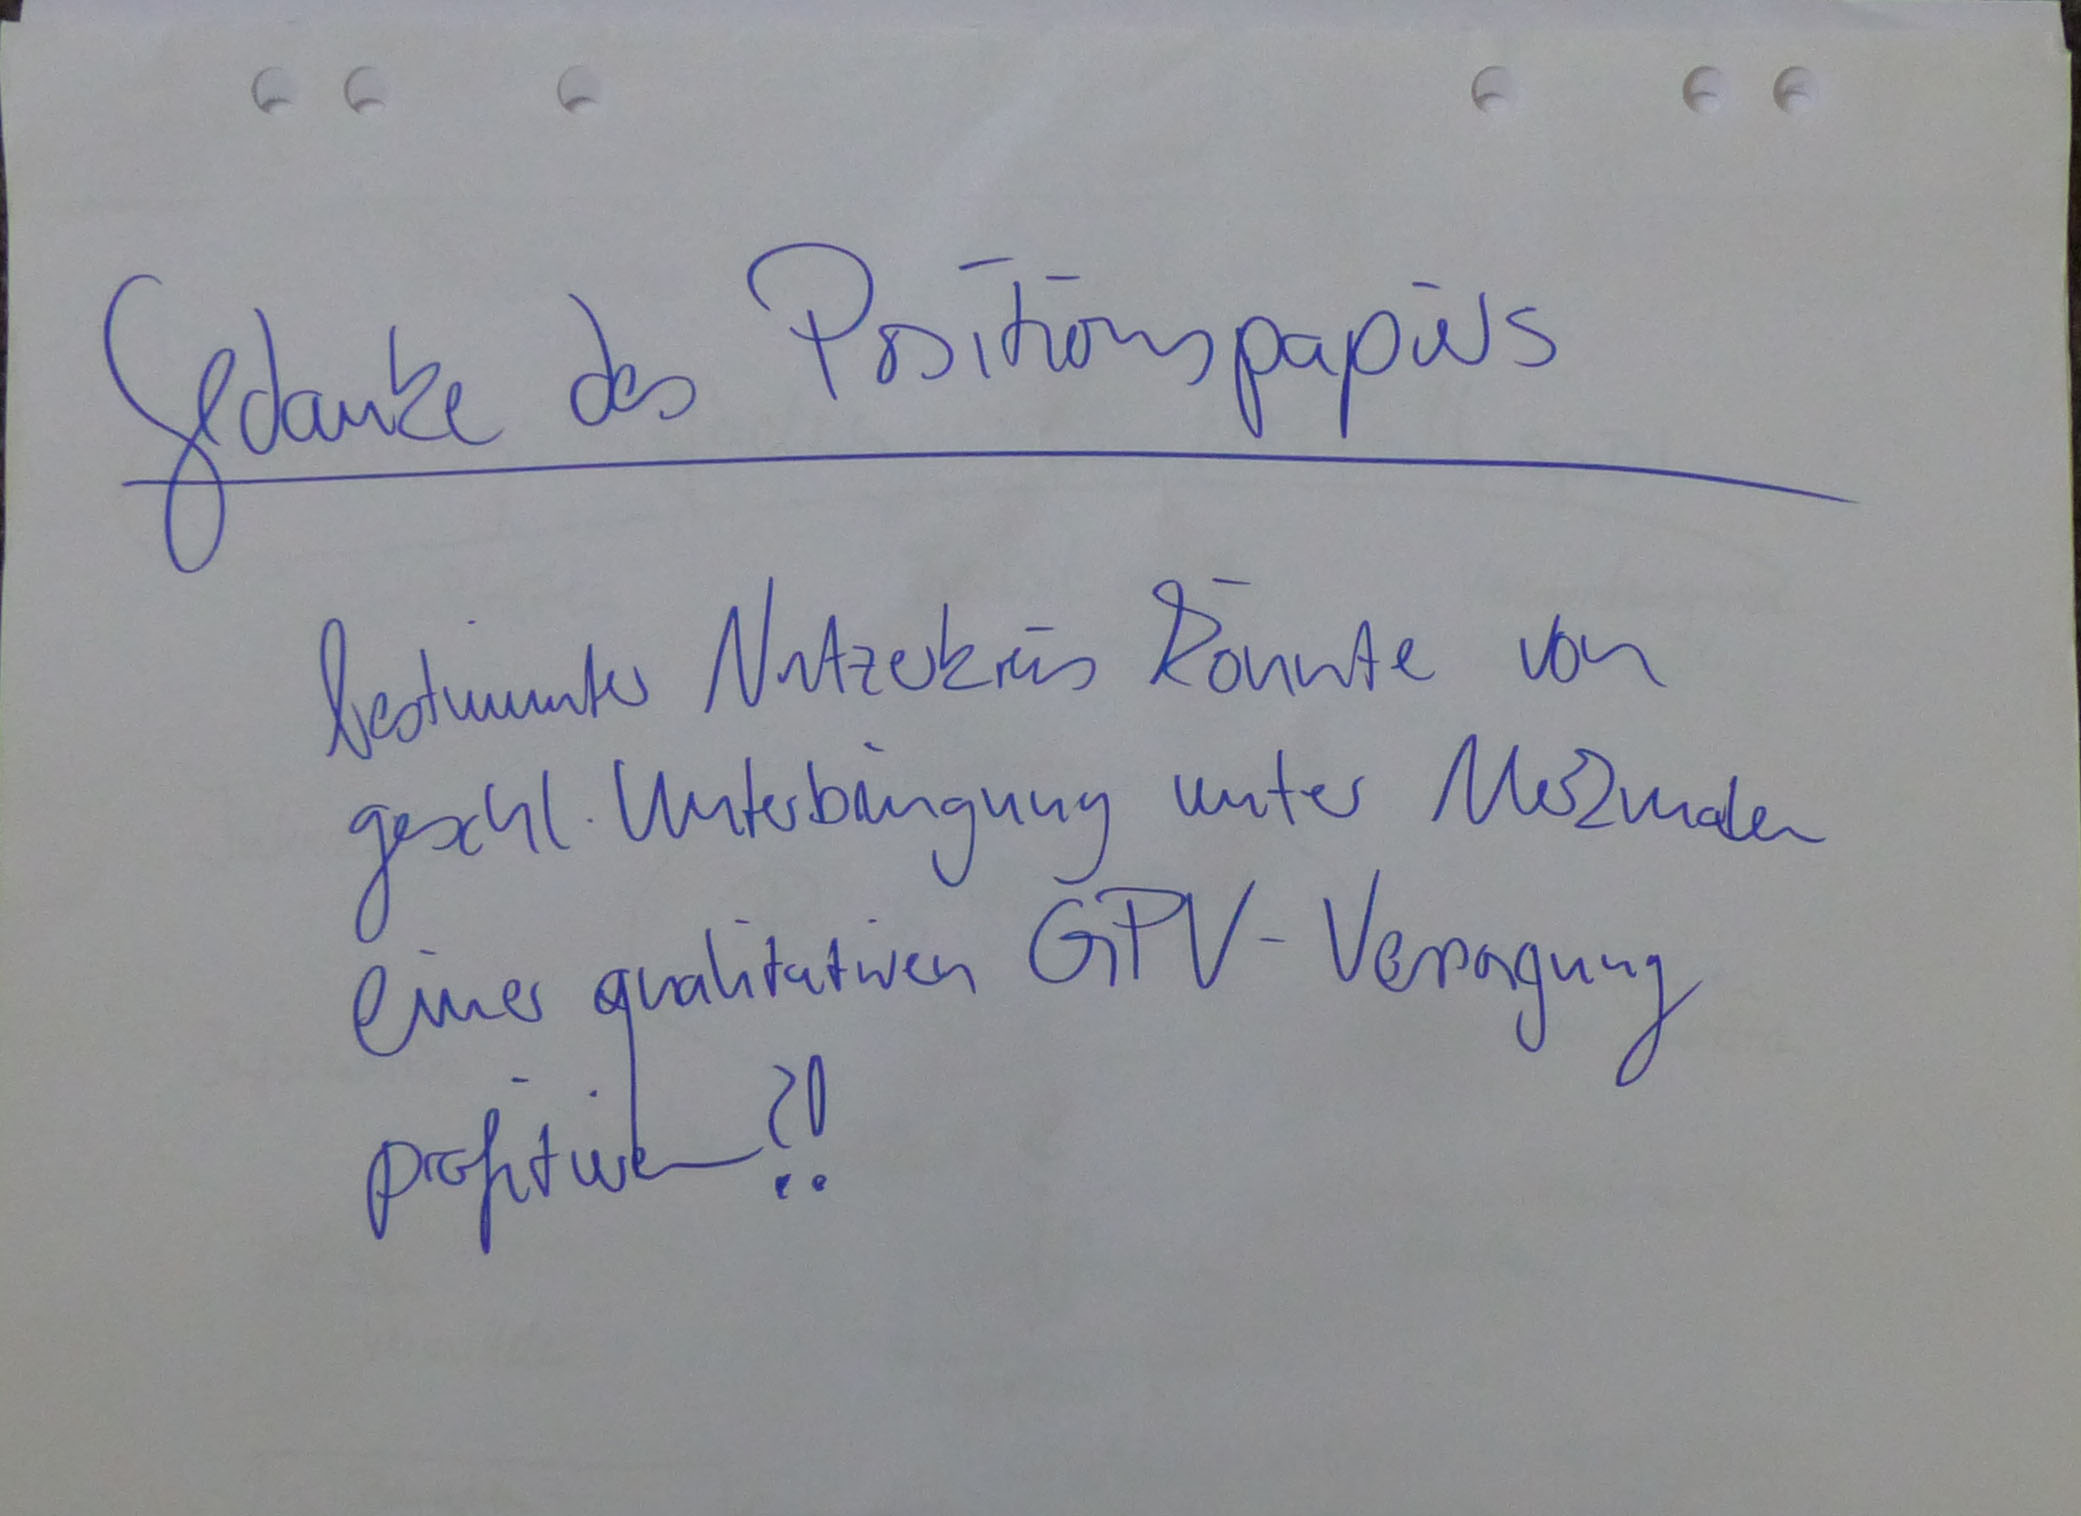 Gedanke des Positionspapiers
bestimmter Nutzerkreis könnte von
geschl. Unterbringung unter Merkmalen
einer qualitativen GPV-Versorgung
profitieren?!